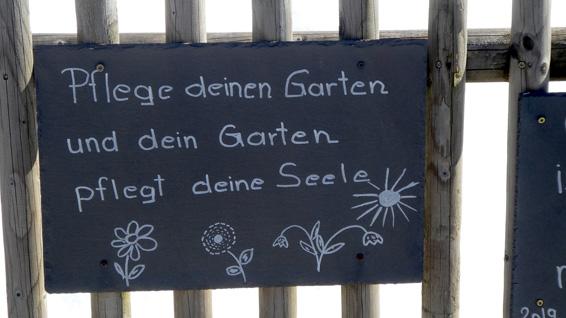 Pflege deinen Garten
und dein Garten
pflegt deine Seele
2019